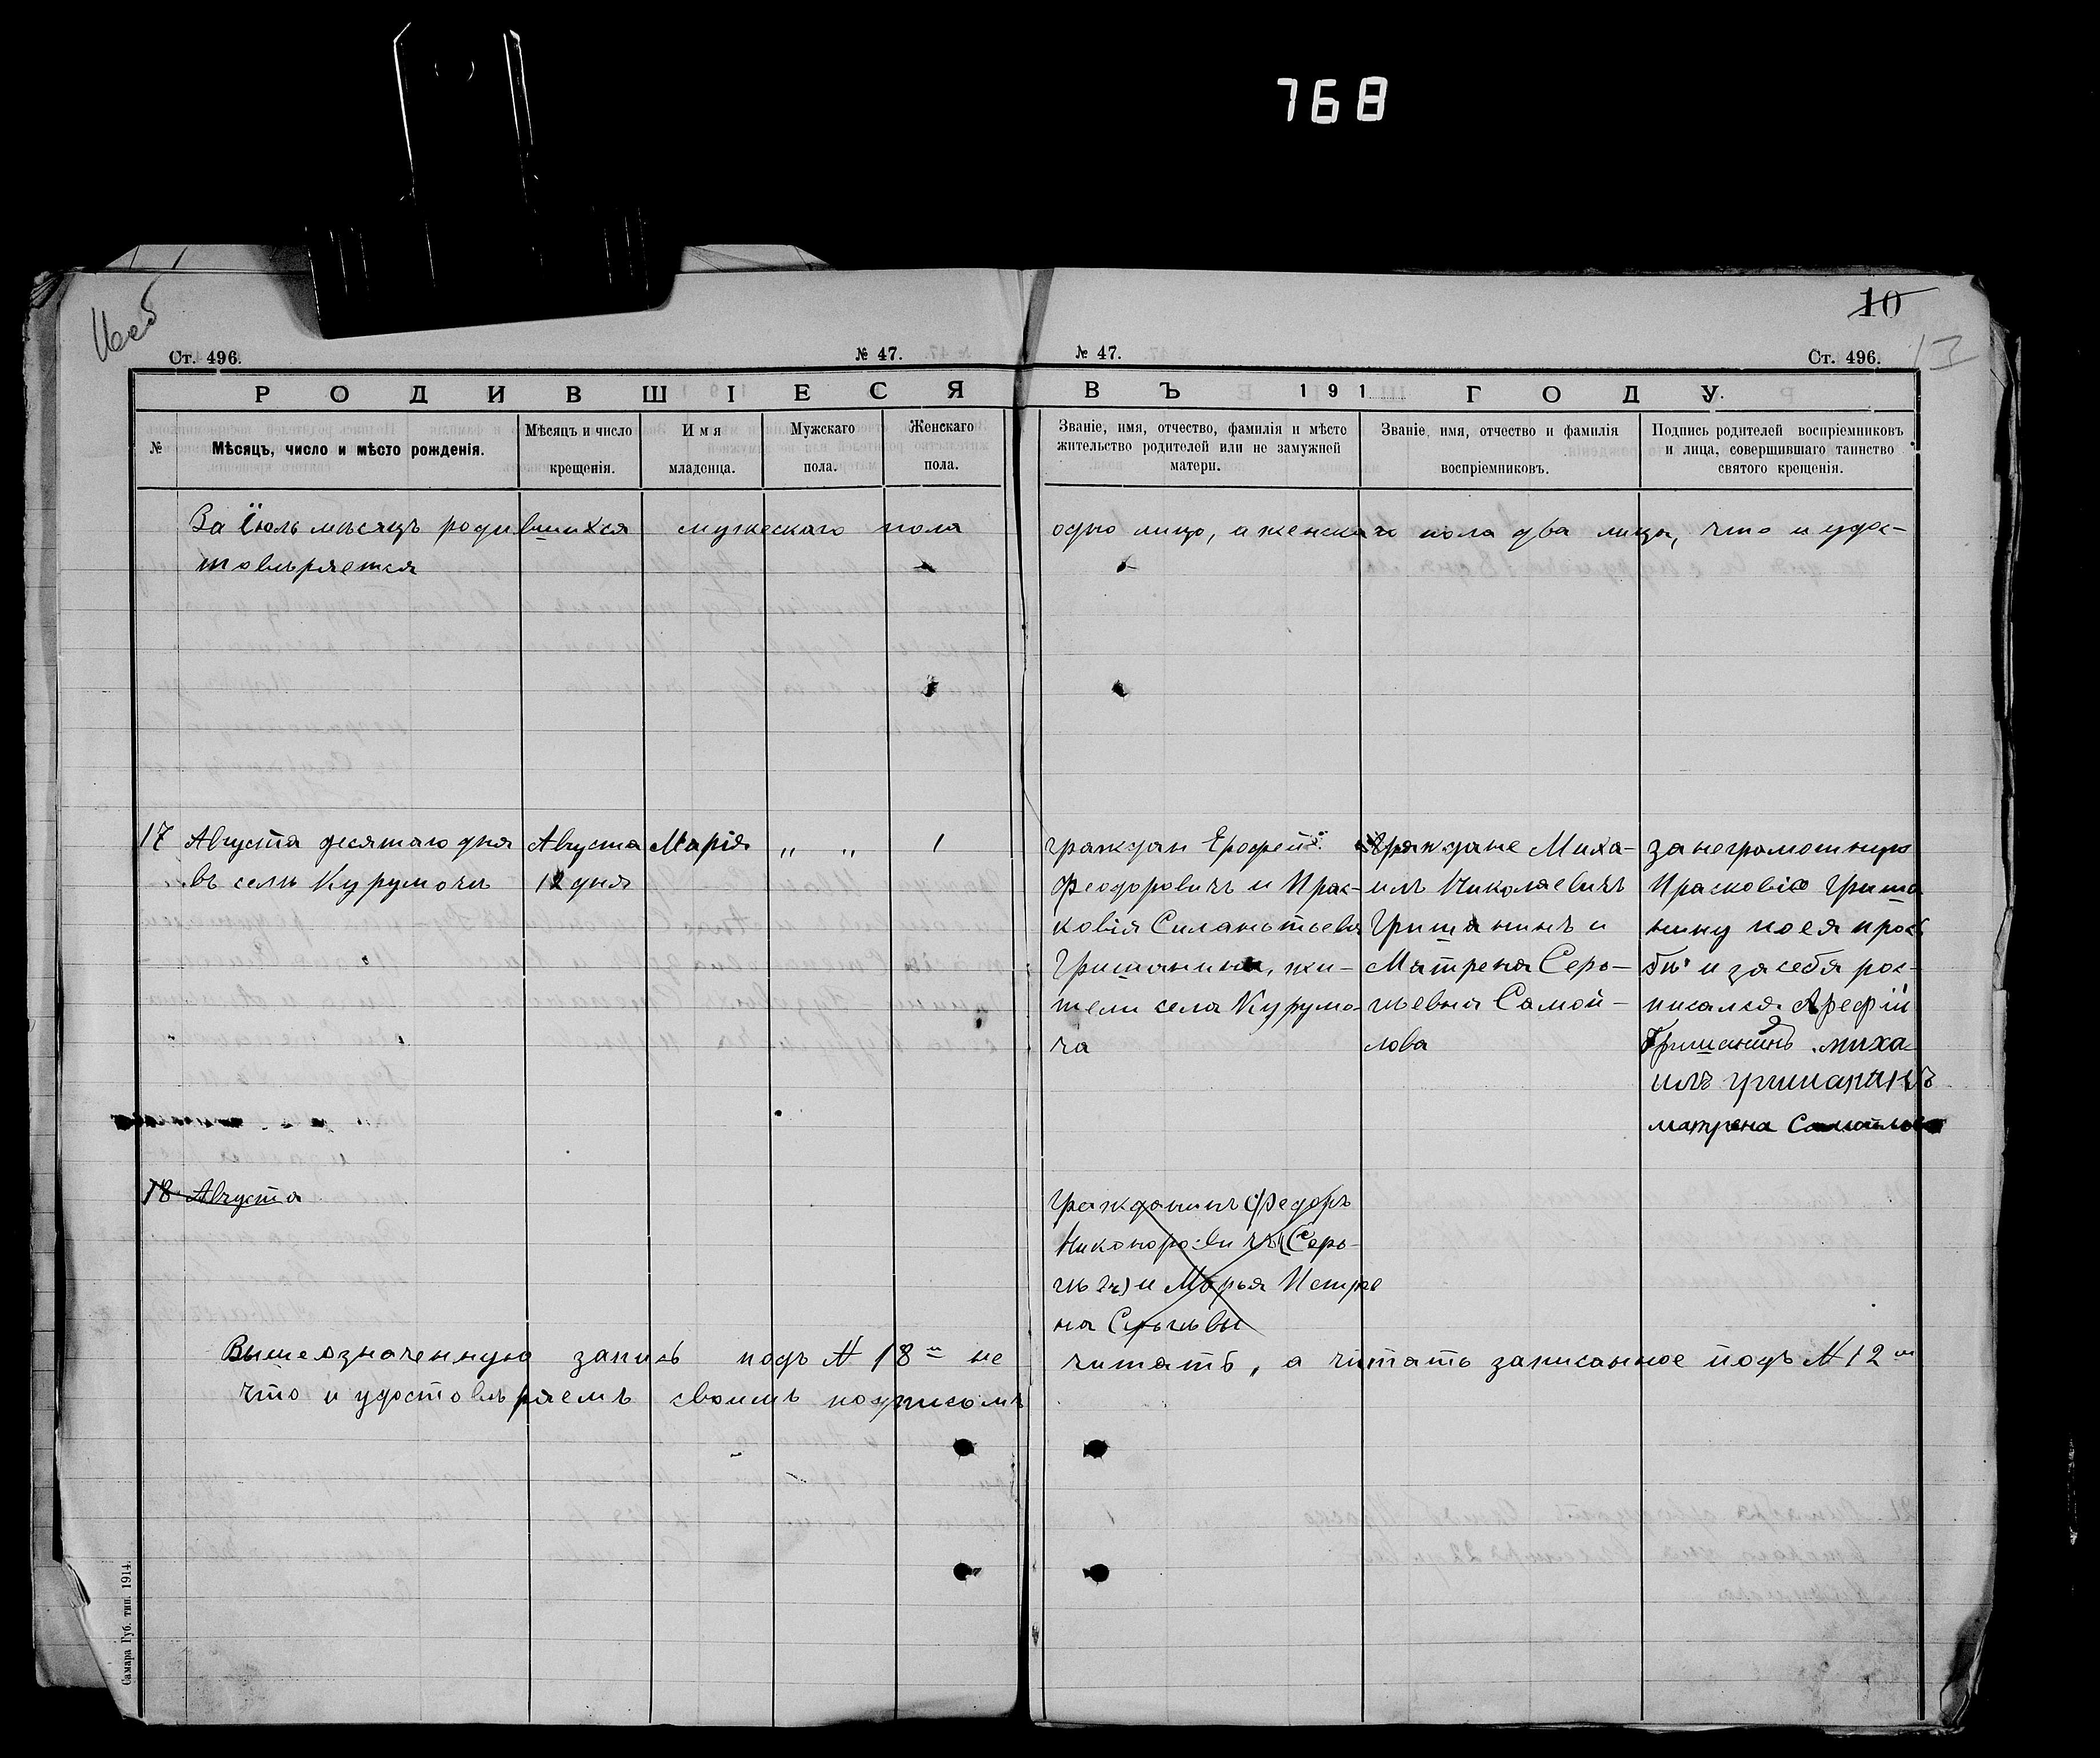 768
10
13
Ст. 496.
№ 47.
№ 47.
Ст. 496.
РОДИВШІЕСЯ
ВЪ 191 ГОДУ.
№
Мѣсяцъ, число и мѣсто рожденія.
Мѣсяцъ и число
крещенія.
Имя
младенца.
Мужскаго
пола.
Женскаго
пола.
Званіе, имя, отчество, фамилія и мѣсто
жительство родителей или не замужней
матери.
Званіе, имя, отчество и фамилія
воспріемниковъ.
Подпись родителей воспріемниковъ
и лица, совершившаго таинство
святого крещенія.
За Іюль мѣсяцъ родившихся мужескаго пола одно лицо, а женскаго пола два лица, что и удос-
товѣряется
17 Августа десятаго дня
въ селѣ Курумочѣ
Августа
12 дня
Марія
„ „
1
граждан Ерофей
Феодоровичъ и Прас-
ковія Силантьевна
Гришанины, жи-
тели села Курумо-
ча
Граждане Миха-
илъ Николаевичъ
Гришанинъ и
Матрена Серь-
гѣевна Самой-
лова
за неграмотную
Прасковію Гриша
нину по ея прось
бѣ и за себя рос-
писался Арефій
Гришанинъ миха
илъ гришанинъ
матрена
18 Августа
Гражданинъ Федоръ
Никоноровичъ (Серь-
гѣевъ) и Марья Петров
на
Вышеозначенную запись подъ № 18 м не читать, а читать записанное подъ № 12 м
что и удостовѣряемъ своимъ подписомъ
Самара Губ. тип. 1914.